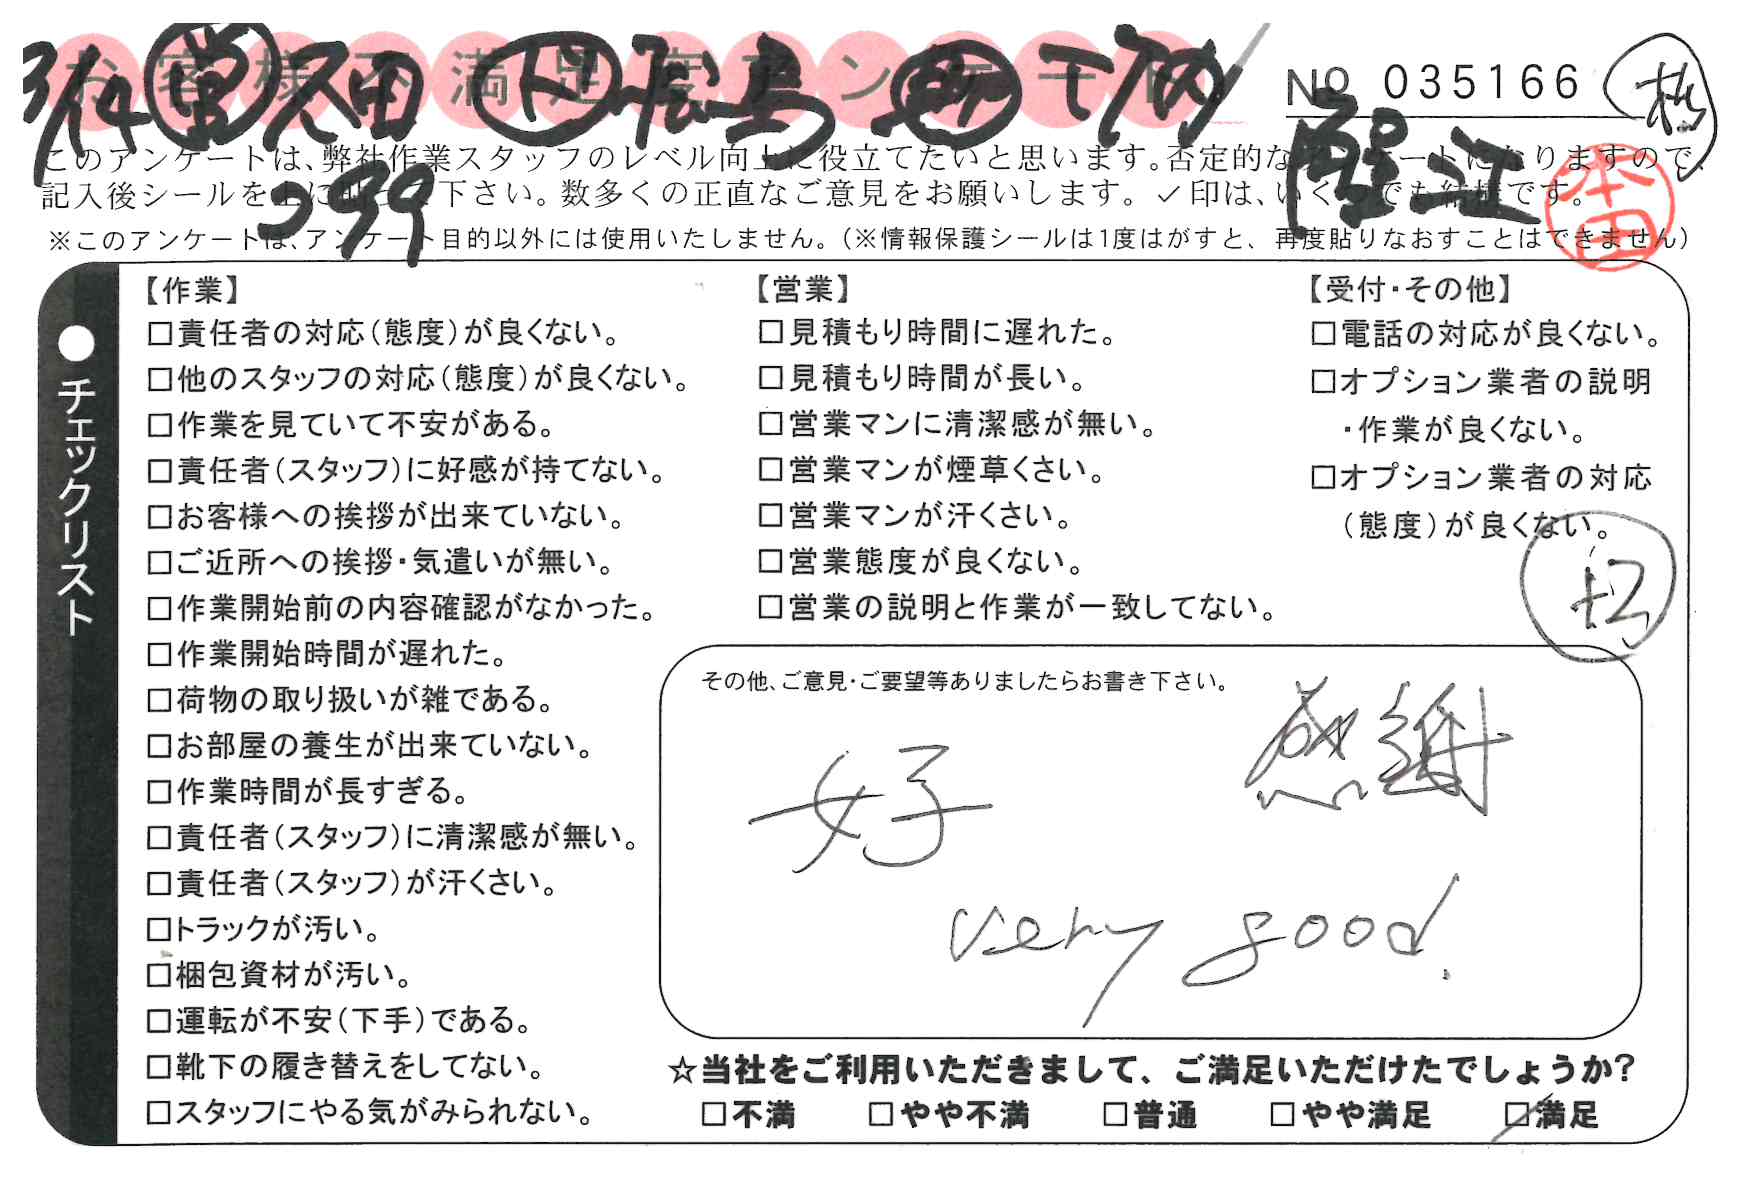 お客様不満足度アンケート
3/14 営 久田 ド 広島 助 千/内
No 035166
このアンケートは、弊社作業スタッフのレベル向上に役立てたいと思います。否定的なアンケートになりますので、
記入後シールを上に貼って下さい。数多くの正直なご意見をお願いします。✓印は、いくつでも結構です。
399
本田
※このアンケートは、アンケート目的以外には使用いたしません。(※情報保護シールは1度はがすと、再度貼りなおすことはできません)
●チェックリスト
【作業】
□責任者の対応(態度)が良くない。
□他のスタッフの対応(態度)が良くない。
□作業を見ていて不安がある。
□責任者(スタッフ)に好感が持てない。
□お客様への挨拶が出来ていない。
□ご近所への挨拶・気遣いが無い。
□作業開始前の内容確認がなかった。
□作業開始時間が遅れた。
□荷物の取り扱いが雑である。
□お部屋の養生が出来ていない。
□作業時間が長すぎる。
□責任者(スタッフ)に清潔感が無い。
□責任者(スタッフ)が汗くさい。
□トラックが汚い。
□梱包資材が汚い。
□運転が不安(下手)である。
□靴下の履き替えをしてない。
□スタッフにやる気がみられない。
【営業】
□見積もり時間に遅れた。
□見積もり時間が長い。
□営業マンに清潔感が無い。
□営業マンが煙草くさい。
□営業マンが汗くさい。
□営業態度が良くない。
□営業の説明と作業が一致してない。
【受付・その他】
□電話の対応が良くない。
□オプション業者の説明
・作業が良くない。
□オプション業者の対応
(態度)が良くない。
その他、ご意見・ご要望等ありましたらお書き下さい。
好 感謝
very good.
☆当社をご利用いただきまして、ご満足いただけたでしょうか?
□不満 □やや不満 □普通 □やや満足 ☑満足